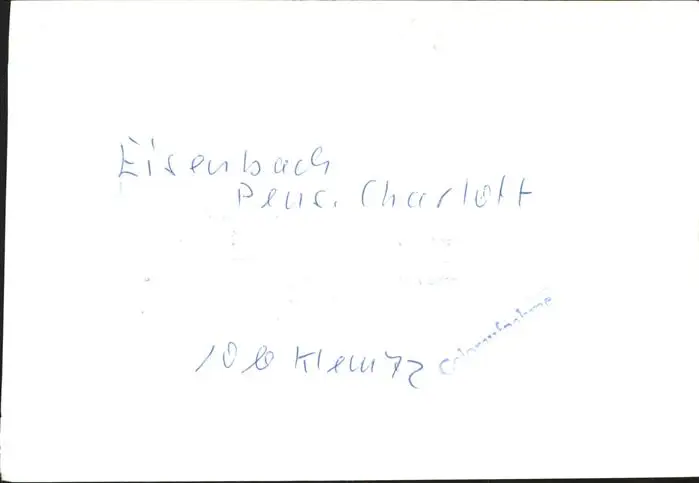 Eisenbach
Pens. Charlott
10 b Klemtz